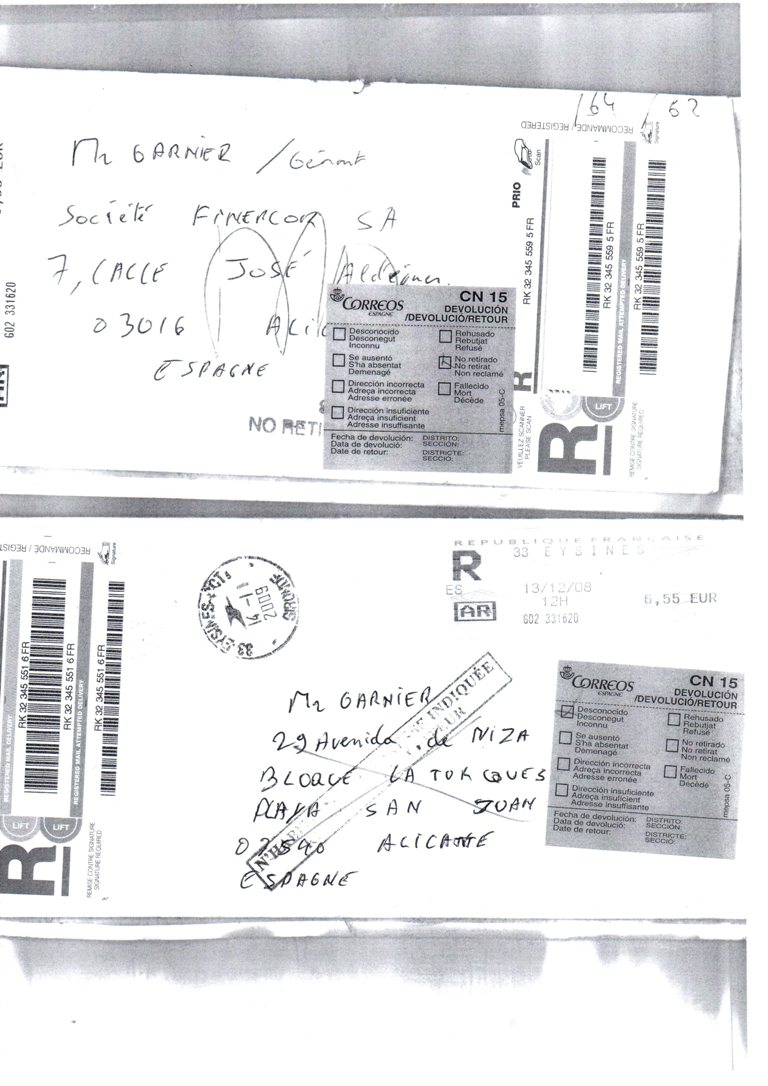 /64 / 62
RECOMMANDE / REGISTERED
Signature
Mr GARNIER / Gérant
Société FINERCOR SA
7, CALLE JOSÉ
03016 ALIC
ESPAGNE
602 331620
AR
PRIO
Scan
RK 32 345 559 5 FR
RK 32 345 559 5 FR
RK 32 345 559 5 FR
REGISTERED MAIL ATTEMPTED DELIVERY
CORREOS
ESPAGNE
CN 15
DEVOLUCIÓN
/DEVOLUCIÓ/RETOUR
Desconocido
Desconegut
Inconnu
Rehusado
Rebutjat
Refusé
Se ausentó
S'ha absentat
Demenagé
No retirado
No retirat
Non reclamé
Dirección incorrecta
Adreça incorrecta
Adresse erronée
Fallecido
Mort
Décède
Dirección insuficiente
Adreça insuficient
Adresse insuffisante
Fecha de devolución:
Data de devolució:
Date de retour:
DISTRITO:
SECCIÓN:
DISTRICTE:
SECCIÓ:
mepsa 05-C
NO RETI
R
VEUILLEZ SCANNER
PLEASE SCAN
R
LIFT
REMISE CONTRE SIGNATURE
SIGNATURE REQUIRED
RECOMMANDE / REGIST
Signature
RK 32 345 551 6 FR
RK 32 345 551 6 FR
REGISTERED MAIL DELIVERY
LIFT
LIFT
R
REMISE CONTRE SIGNATURE
SIGNATURE REQUIRED
33 EYSINES PCT
14 -1
2009
GIRONDE
REPUBLIQUE FRANCAISE
R
33 EYSINES
ES
13/12/08
12H
6,55 EUR
AR
602 331620
Mr GARNIER
29 Avenida de NIZA
BLOQUE LA TORQUES
PLAYA SAN JUAN
ALICANTE
ESPAGNE
INDIQUÉE
CORREOS
ESPAGNE
CN 15
DEVOLUCIÓN
/DEVOLUCIÓ/RETOUR
Desconocido
Desconegut
Inconnu
Rehusado
Rebutjat
Refusé
Se ausentó
S'ha absentat
Demenagé
No retirado
No retirat
Non reclamé
Dirección incorrecta
Adreça incorrecta
Adresse erronée
Fallecido
Mort
Décède
Dirección insuficiente
Adreça insuficient
Adresse insuffisante
Fecha de devolución:
Data de devolució:
Date de retour:
DISTRITO:
SECCIÓN:
DISTRICTE:
SECCIÓ
mepsa 05-C